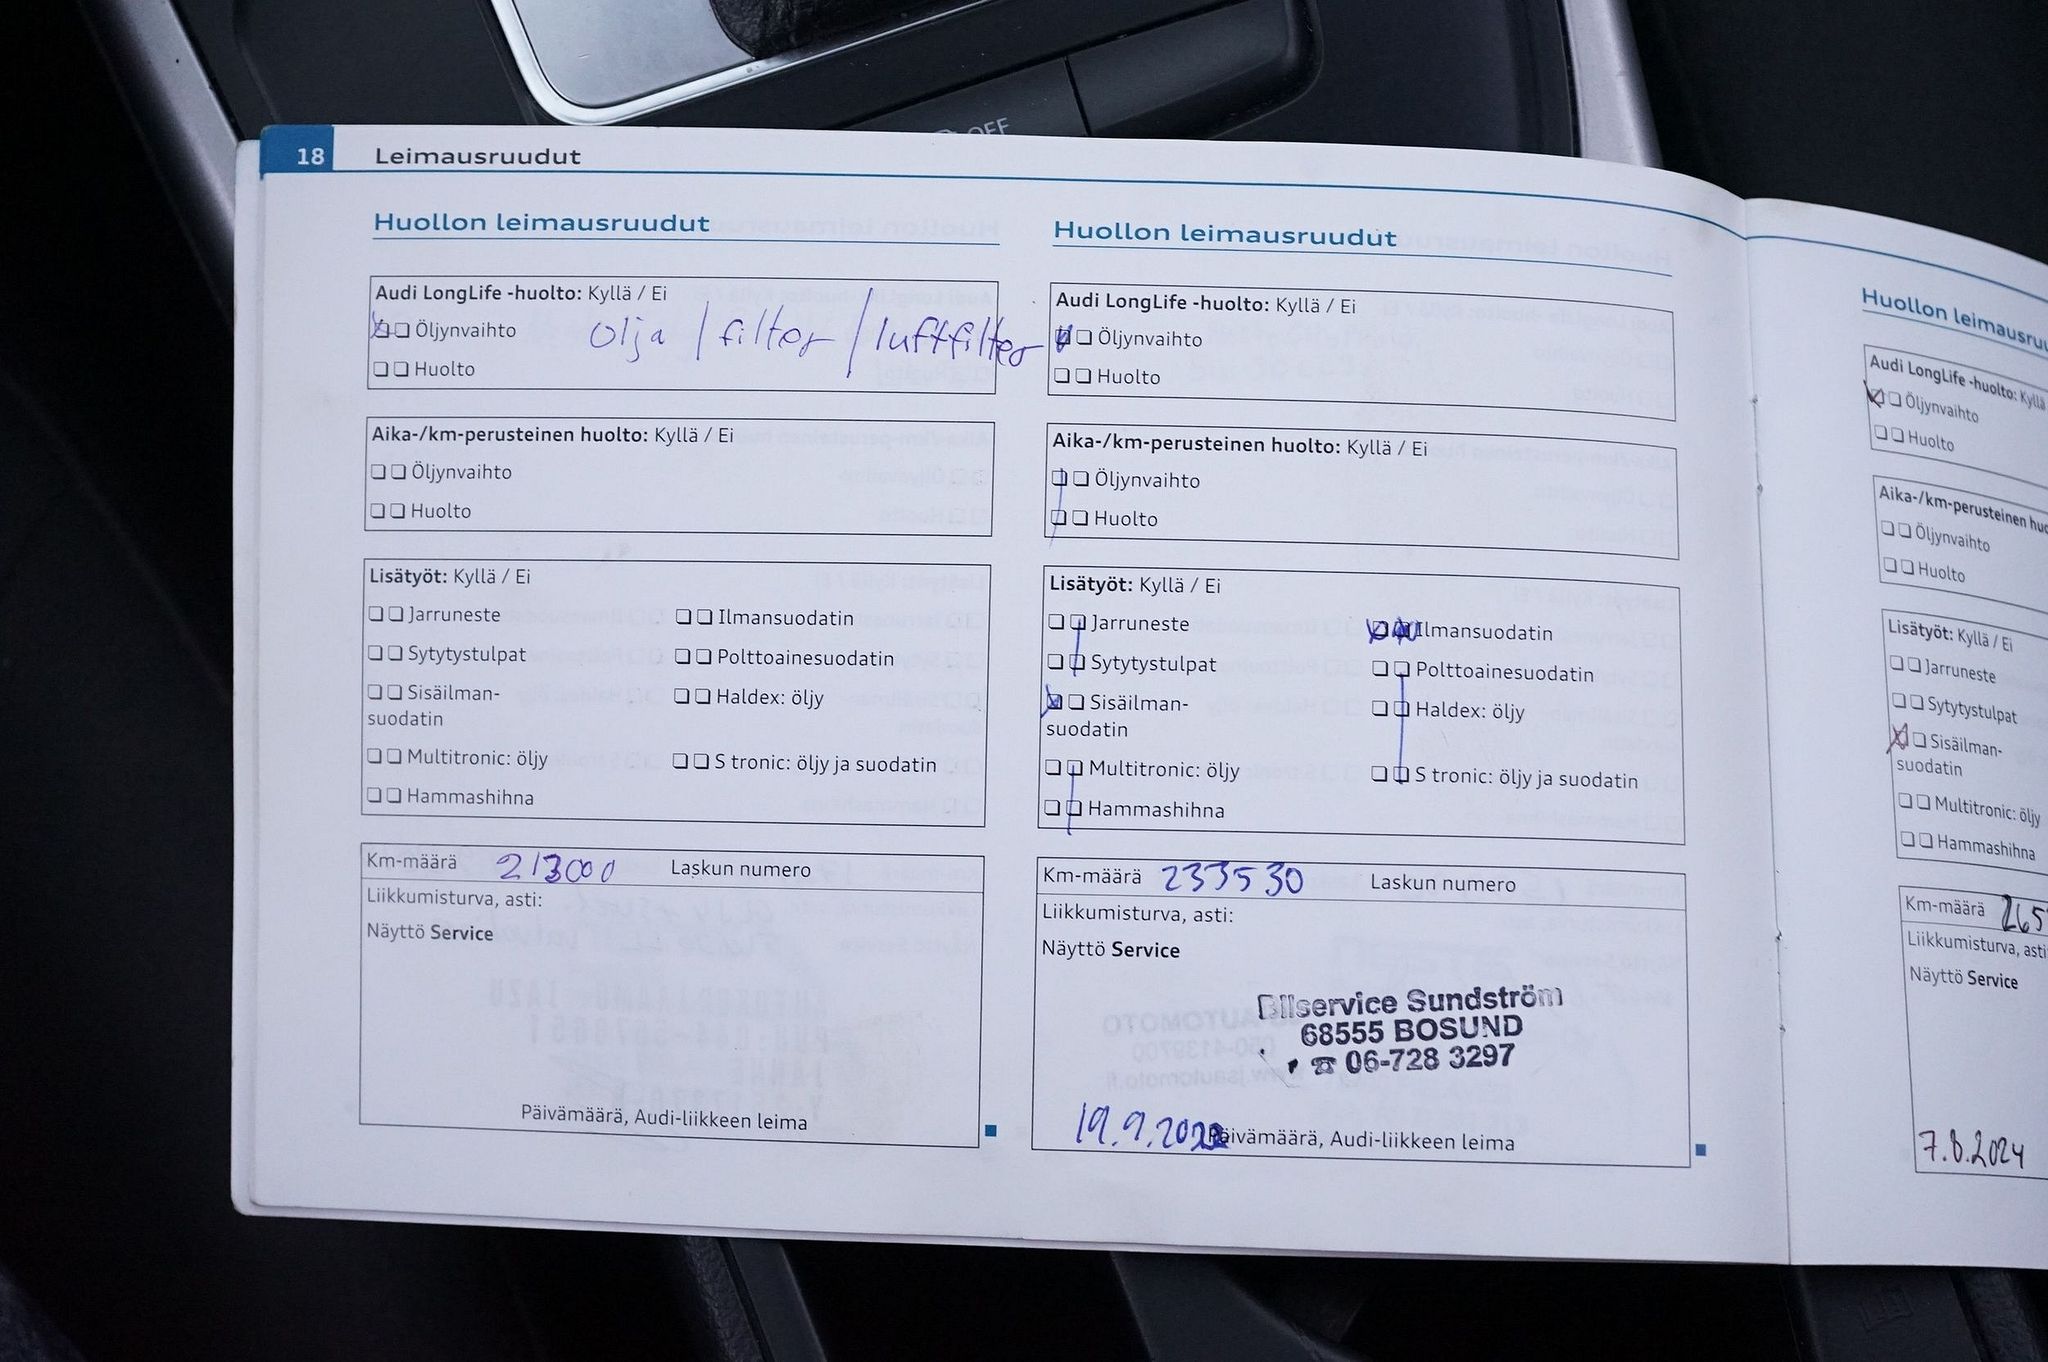 OFF
18 Leimausruudut
Huollon leimausruudut
Audi LongLife -huolto: Kyllä / Ei
Öljynvaihto olja / filter / luftfilter
Huolto
Aika-/km-perusteinen huolto: Kyllä / Ei
Öljynvaihto
Huolto
Lisätyöt: Kyllä / Ei
Jarruneste Ilmansuodatin
Sytytystulpat Polttoainesuodatin
Sisäilman- Haldex: öljy
suodatin
Multitronic: öljy S tronic: öljy ja suodatin
Hammashihna
Km-määrä 213000 Laskun numero
Liikkumisturva, asti:
Näyttö Service
Päivämäärä, Audi-liikkeen leima
Huollon leimausruudut
Audi LongLife -huolto: Kyllä / Ei
Öljynvaihto
Huolto
Aika-/km-perusteinen huolto: Kyllä / Ei
Öljynvaihto
Huolto
Lisätyöt: Kyllä / Ei
Jarruneste Ilmansuodatin
Sytytystulpat Polttoainesuodatin
Sisäilman- Haldex: öljy
suodatin
Multitronic: öljy S tronic: öljy ja suodatin
Hammashihna
Km-määrä 233530 Laskun numero
Liikkumisturva, asti:
Näyttö Service
Bilservice Sundström
68555 BOSUND
☎ 06-728 3297
19.9. Päivämäärä, Audi-liikkeen leima
Huollon leimausru
Audi LongLife -huolto: Kyllä
Öljynvaihto
Huolto
Aika-/km-perusteinen huo
Öljynvaihto
Huolto
Lisätyöt: Kyllä / Ei
Jarruneste
Sytytystulpat
Sisäilman-
suodatin
Multitronic: öljy
Hammashihna
Km-määrä 265
Liikkumisturva, asti
Näyttö Service
7.8.2024